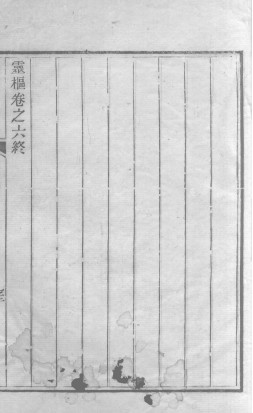 靈樞卷之六終